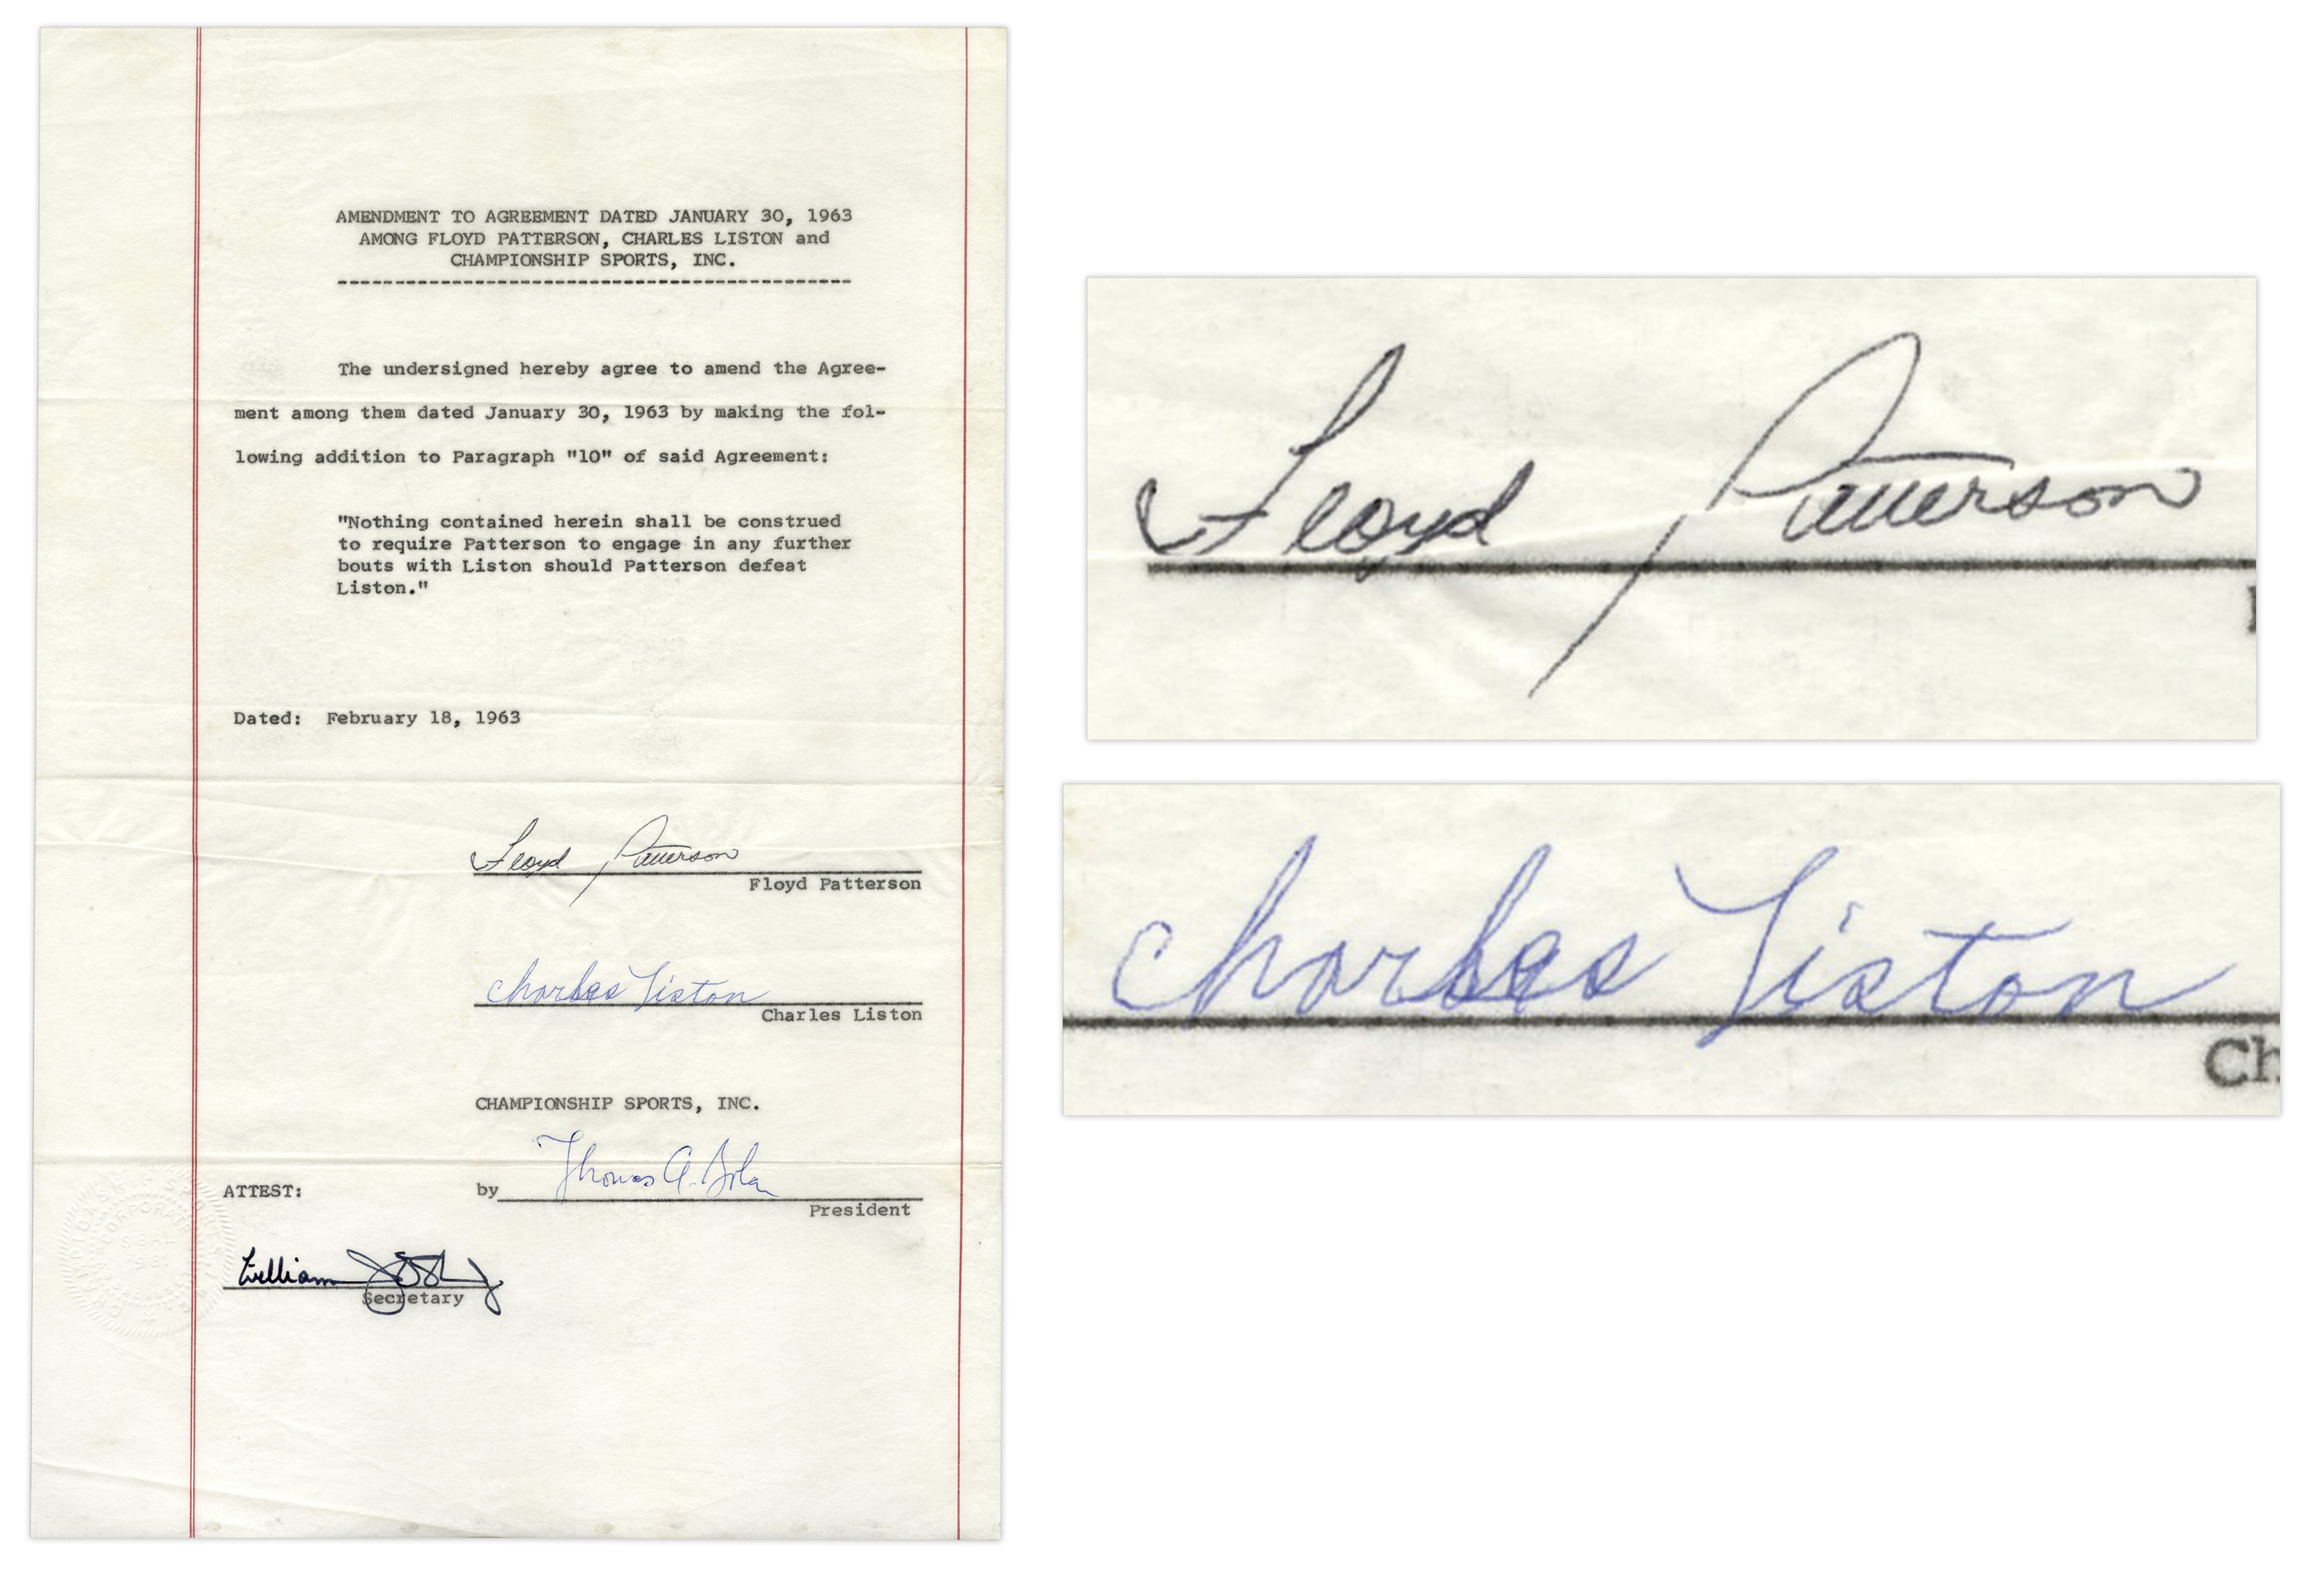 AMENDMENT TO AGREEMENT DATED JANUARY 30, 1963
AMONG FLOYD PATTERSON, CHARLES LISTON and
CHAMPIONSHIP SPORTS, INC.
--------------------------------------------
The undersigned hereby agree to amend the Agree-
ment among them dated January 30, 1963 by making the fol-
lowing addition to Paragraph "10" of said Agreement:
"Nothing contained herein shall be construed
to require Patterson to engage in any further
bouts with Liston should Patterson defeat
Liston."
Dated: February 18, 1963
Floyd Patterson
Floyd Patterson
Charles Liston
Charles Liston
CHAMPIONSHIP SPORTS, INC.
ATTEST: by Thomas A.
President
William
Secretary
CORPORATE
SEAL
Floyd Patterson
Charles Liston
Ch